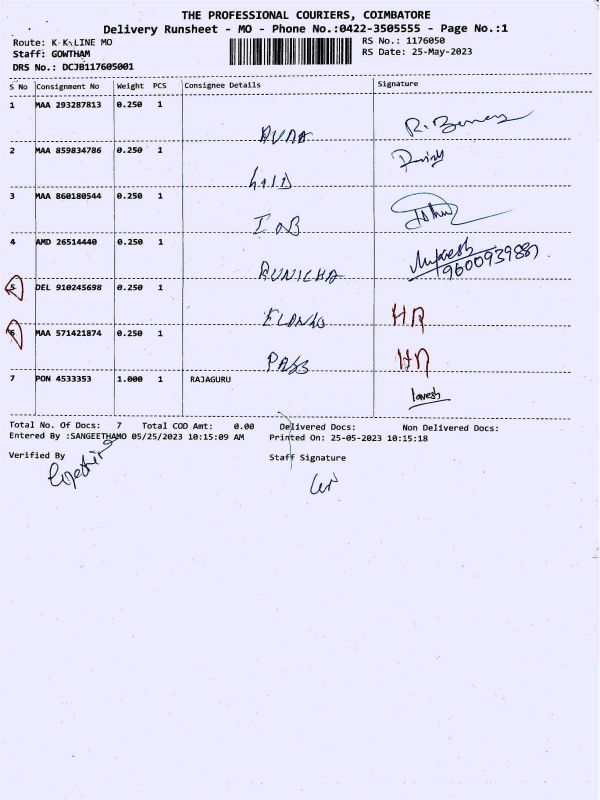 THE PROFESSIONAL COURIERS, COIMBATORE
Delivery Runsheet - MO - Phone No.:0422-3505555 - Page No.:1
Route: K K LINE MO RS No.: 1176050
Staff: GOWTHAM RS Date: 25-May-2023
DRS No.: DCJB117605001
S No Consignment No Weight PCS Consignee Details Signature
1 MAA 293287813 0.250 1
2 MAA 859834786 0.250 1
3 MAA 860180544 0.250 1
IOB
4 AMD 26514440 0.250 1
Mukesh
9600939887
5 DEL 910245698 0.250 1
HR
6 MAA 571421874 0.250 1
PASS
7 PON 4533353 1.000 1 RAJAGURU
Total No. Of Docs: 7 Total COD Amt: 0.00 Delivered Docs: Non Delivered Docs:
Entered By :SANGEETHAMO 05/25/2023 10:15:09 AM Printed On: 25-05-2023 10:15:18
Verified By Staff Signature